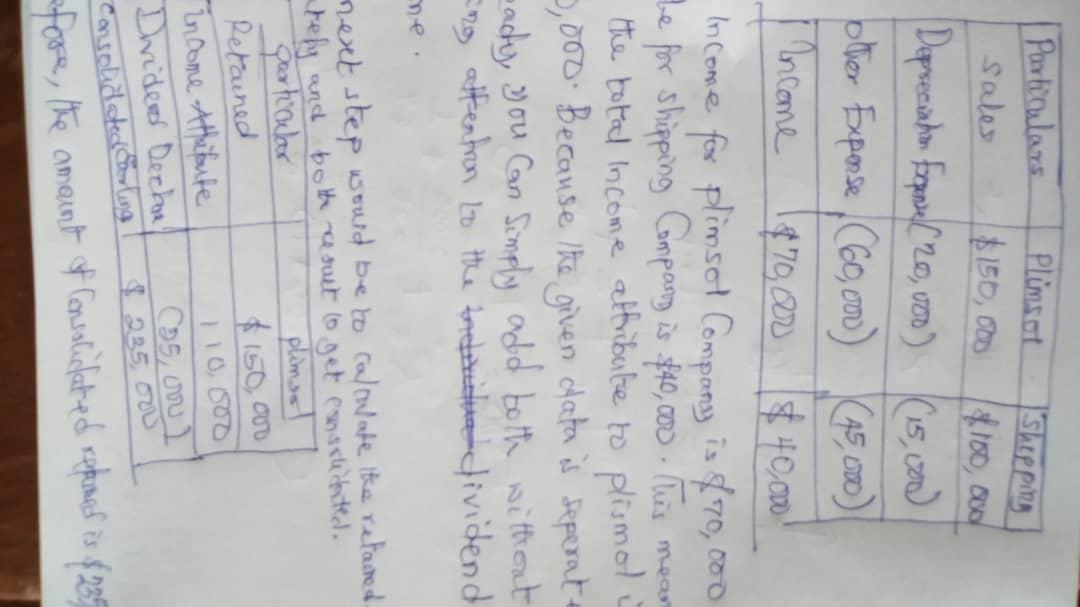 Particulars Plimsol Shipping
Sales $150,000 $100,000
Depreciation Expense (20,000) (15,000)
Other Expense (60,000) (45,000)
Income $70,000 $40,000
Income for plimsol Company is $70,000
for Shipping Company is $40,000. This mean
the total Income attribute to plismol
0,000. Because the given data is seperat
eady, you Can Simply add both without
ing attention to the dividend
me.
next step would be to calculate the retained
ately and both result to get consolidated.
particular plimsol
Retained $150,000
Income Attribute 110,000
Dividend Declar (25,000)
Consolidated Earling $ 235,000
efore, the amount of Consolidated retained is $235,